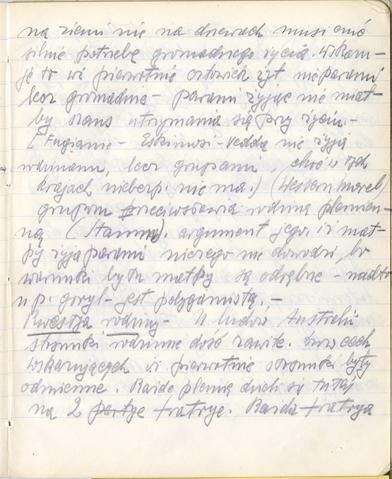 na ziemi nie na drzewach musi mieć
silnie potrzebę gromadnego życia. Wskazu-
je to iż pierwotnie człowiek żył nie parami
lecz gromadnie – parami żyjąc nie miał-
by szans utrzymania się przy życiu –
(Fuegianie – Eskimosi – Vedda nie żyją
rodzinami, lecz grupami, choć w tych
krajach niebezp. nie ma.) (Westermarck
grupom przeciwstawia rodzinę plemien-
ną (Stamm), argument jego, iż mał-
py żyją parami niczego nie dowodzi, bo
warunki bytu małpy są odrębne – nadto
np. goryl – jest poligamistą. –
Kwestja rodziny – U ludów Australii
stosunki rodzinne dość zawiłe.
wskazujących iż pierwotnie stosunki były
odmienne. Każde plemię dzieli się tutaj
na 2 fratrje. Każda fratrja